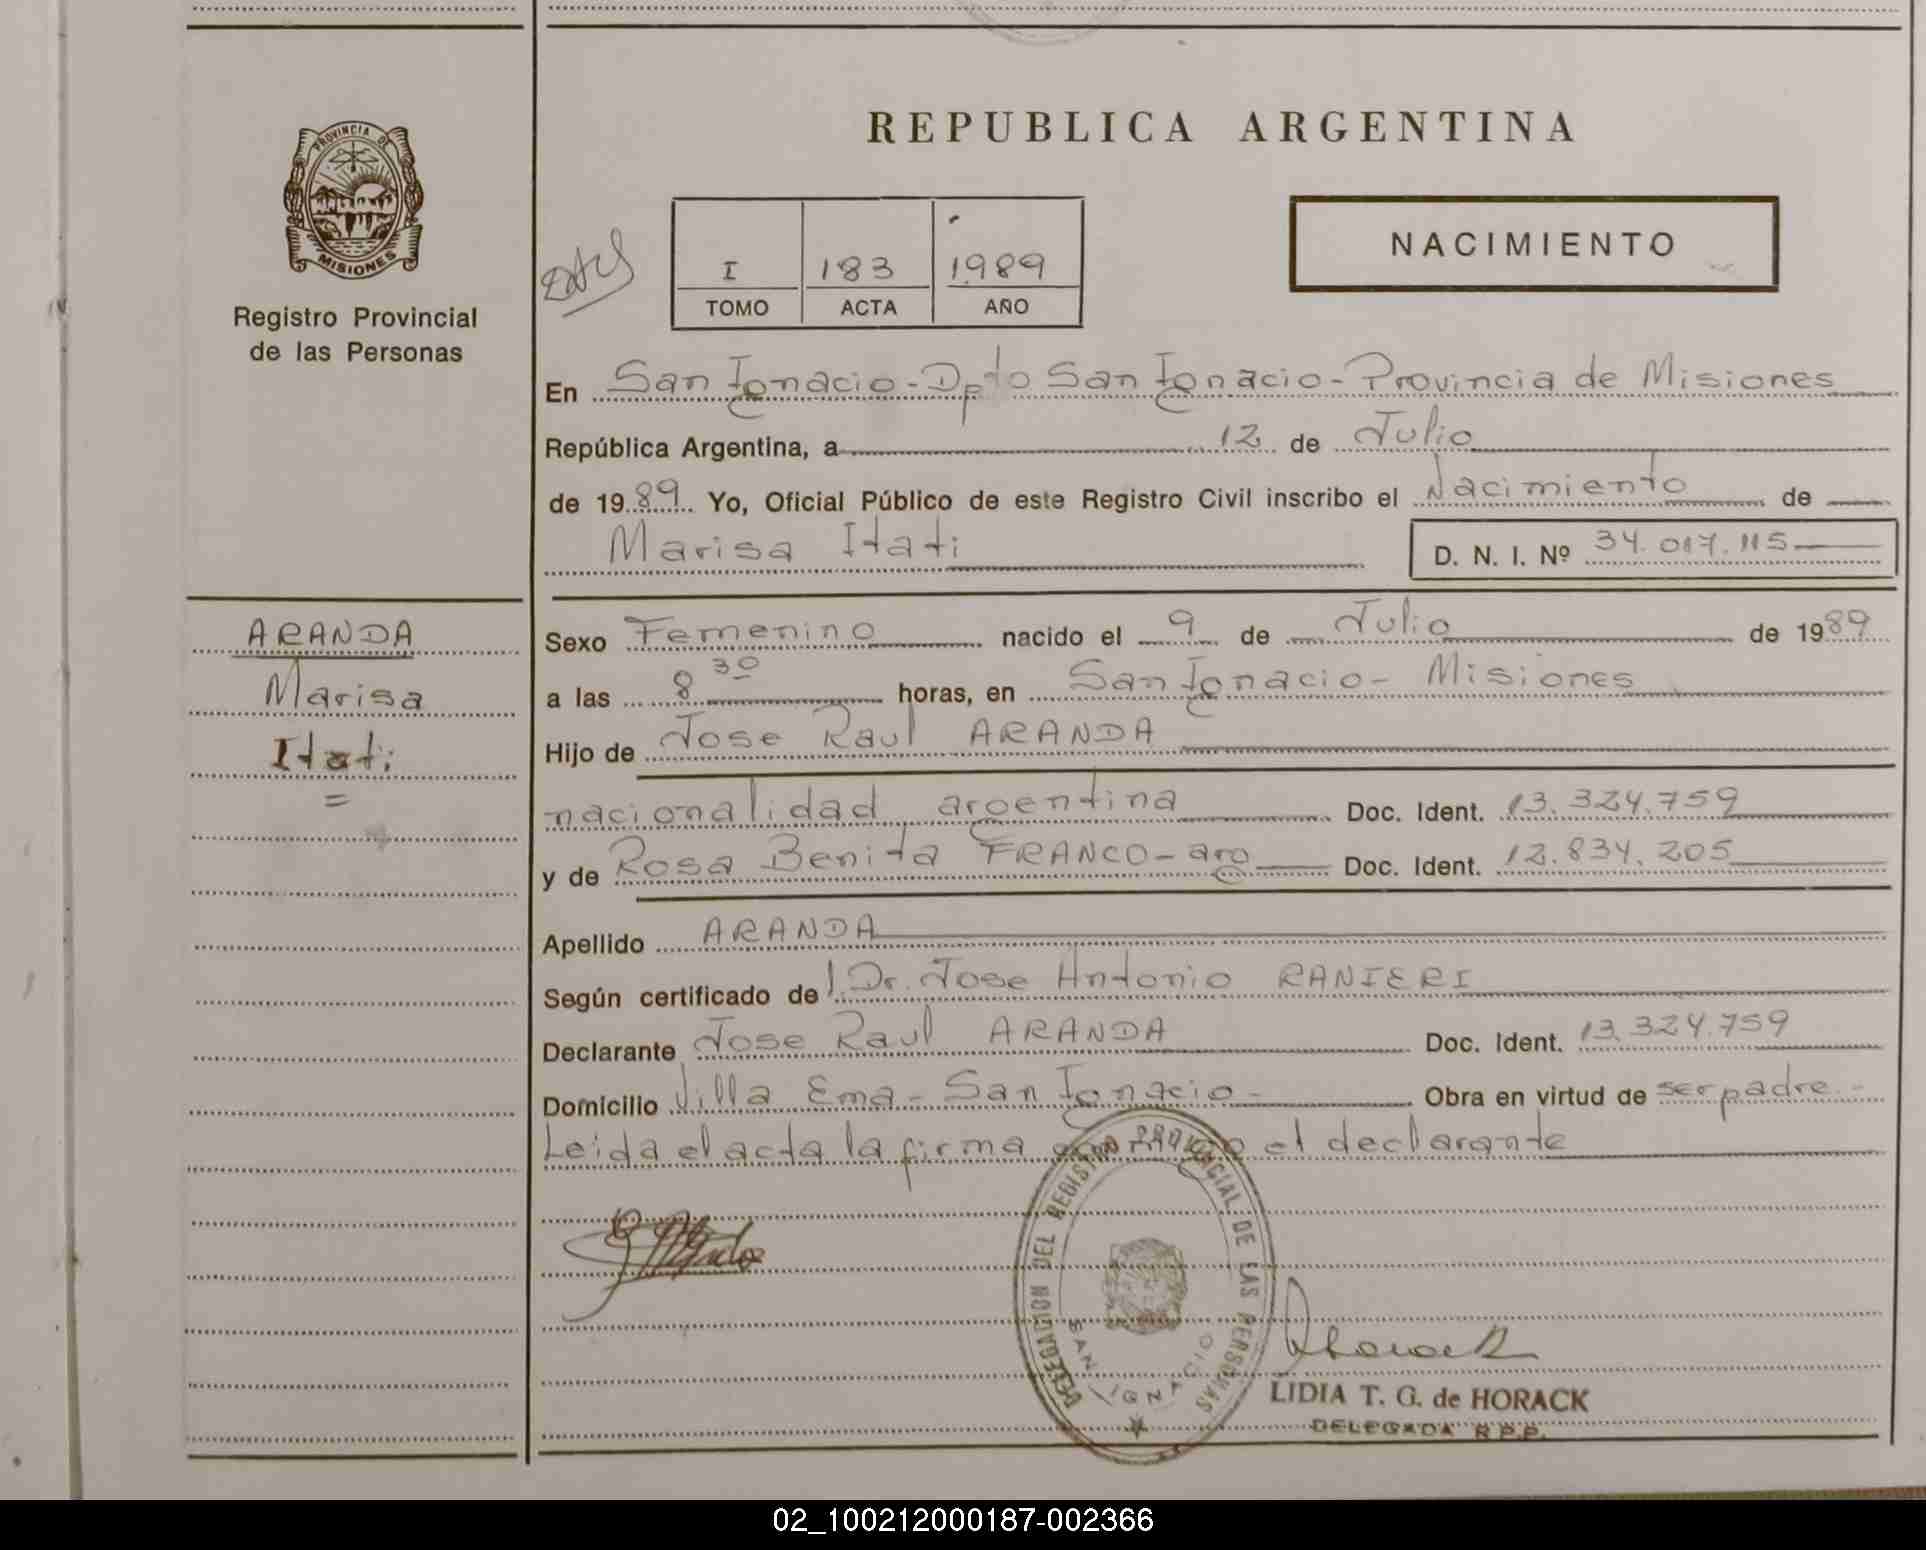 REPUBLICA ARGENTINA
PROVINCIA DE
MISIONES
Registro Provincial
de las Personas
I 183 1989
TOMO ACTA AÑO
NACIMIENTO
En San Ignacio - Dpto San Ignacio - Provincia de Misiones
República Argentina, a 12 de Julio
de 1989 Yo, Oficial Público de este Registro Civil inscribo el Nacimiento de
Marisa Itati
D. N. I. Nº 34.017.115
ARANDA
Marisa
Itati
Sexo Femenino nacido el 9 de Julio de 1989
a las 8 30 horas, en San Ignacio - Misiones
Hijo de Jose Raul ARANDA
nacionalidad argentina Doc. Ident. 13.324.759
y de Rosa Benita FRANCO - arg Doc. Ident. 12.834.205
Apellido ARANDA
Según certificado del Dr. Jose Antonio RANIERI
Declarante Jose Raul ARANDA Doc. Ident. 13.324.759
Domicilio Villa Ema - San Ignacio - Obra en virtud de ser padre.-
Leida el acta la firma conmigo el declarante
DELEGACION DEL REGISTRO PROVINCIAL DE LAS PERSONAS
SAN IGNACIO
LIDIA T. G. de HORACK
DELEGADA R.P.P.
02_100212000187-002366